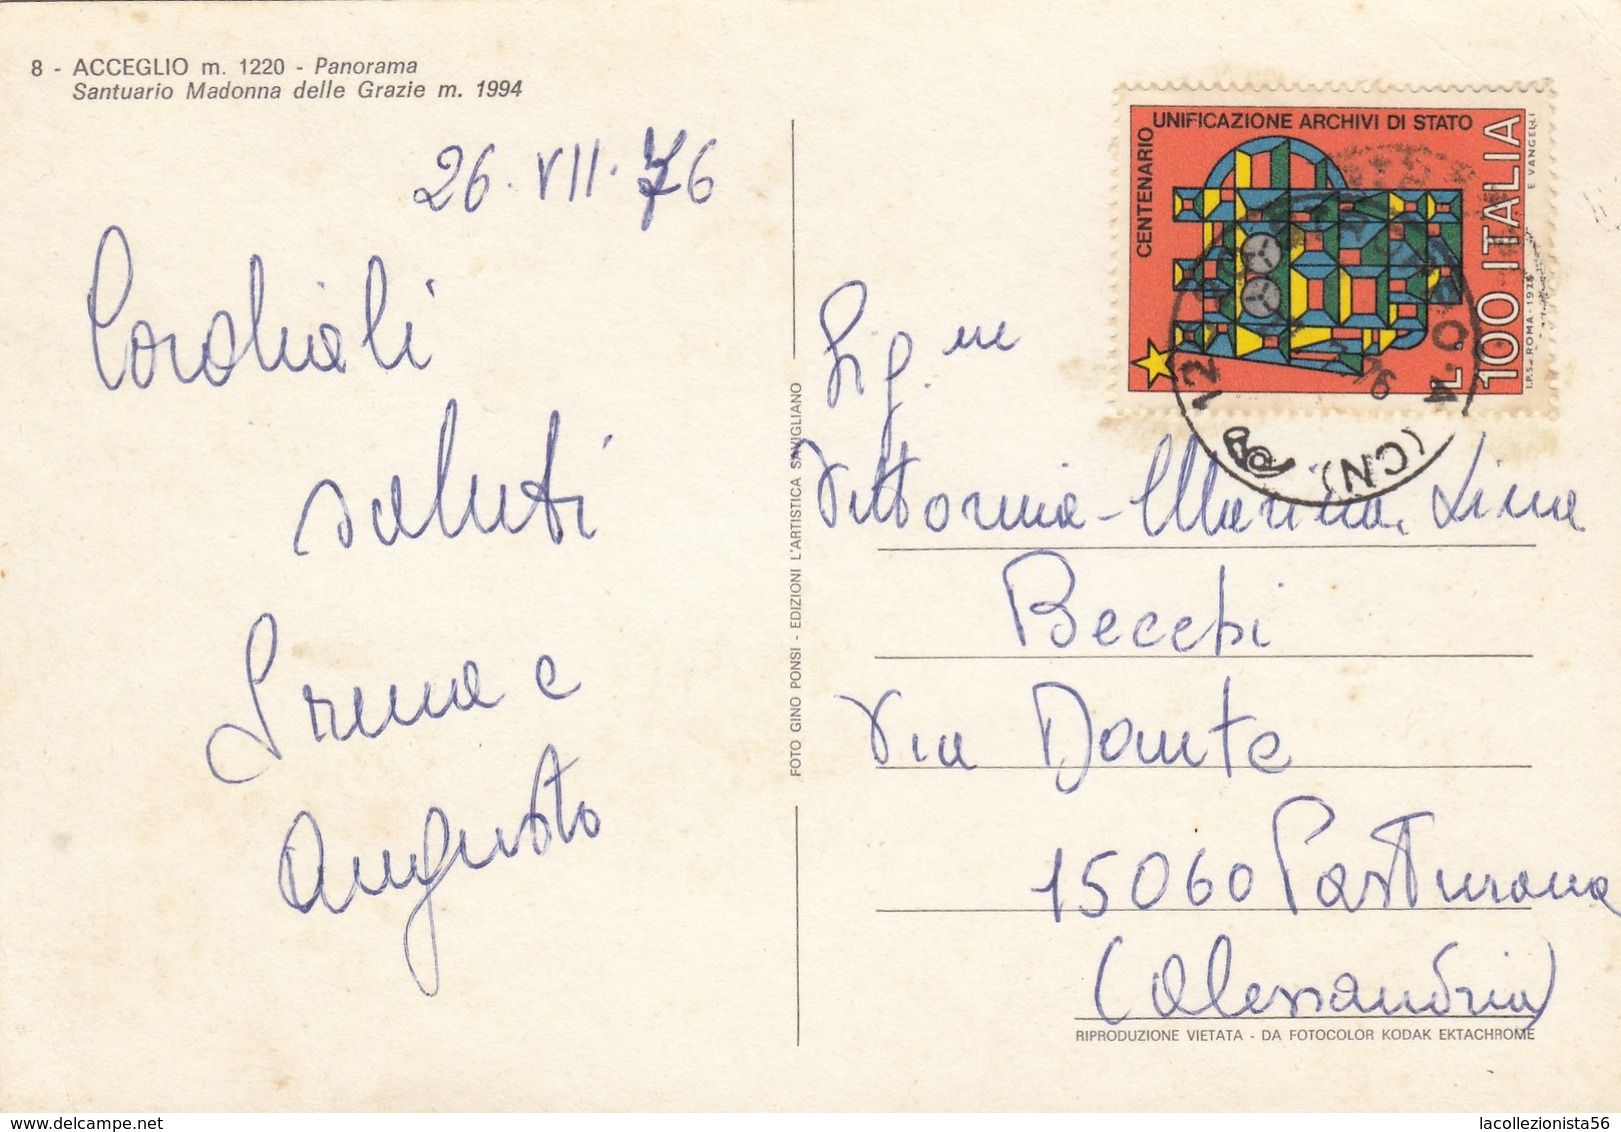 8 - ACCEGLIO m. 1220 - Panorama
Santuario Madonna delle Grazie m. 1994
26.VII.76
Cordiali
saluti
Irma e
Augusto
FOTO GINO PONSI - EDIZIONI L'ARTISTICA SAVIGLIANO
CENTENARIO
UNIFICAZIONE ARCHIVI DI STATO
L 100 ITALIA
E VANGELLI
I.P.S. - ROMA - 1975
12
(CN)
Sig.me
Vittorina - Marina, Lina
Becchi
Via Dante
15060 Pasturana
(Alessandria)
RIPRODUZIONE VIETATA - DA FOTOCOLOR KODAK EKTACHROME
lacollezionista56